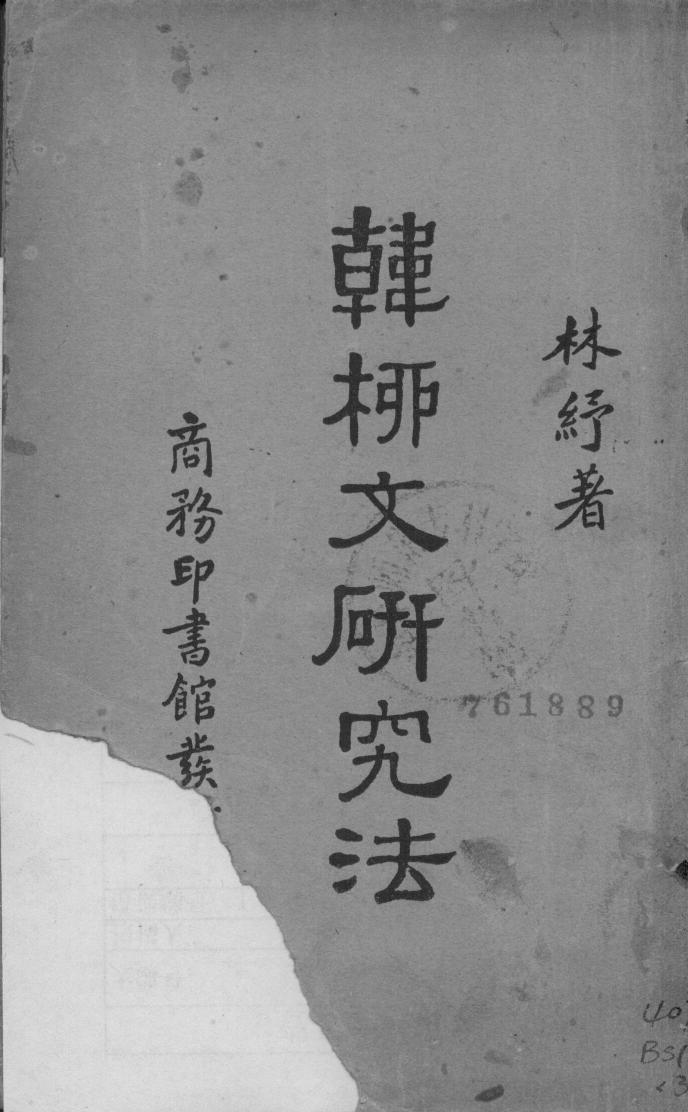 林紓著
韓柳文研究法
商務印書館發
761889
40
BS